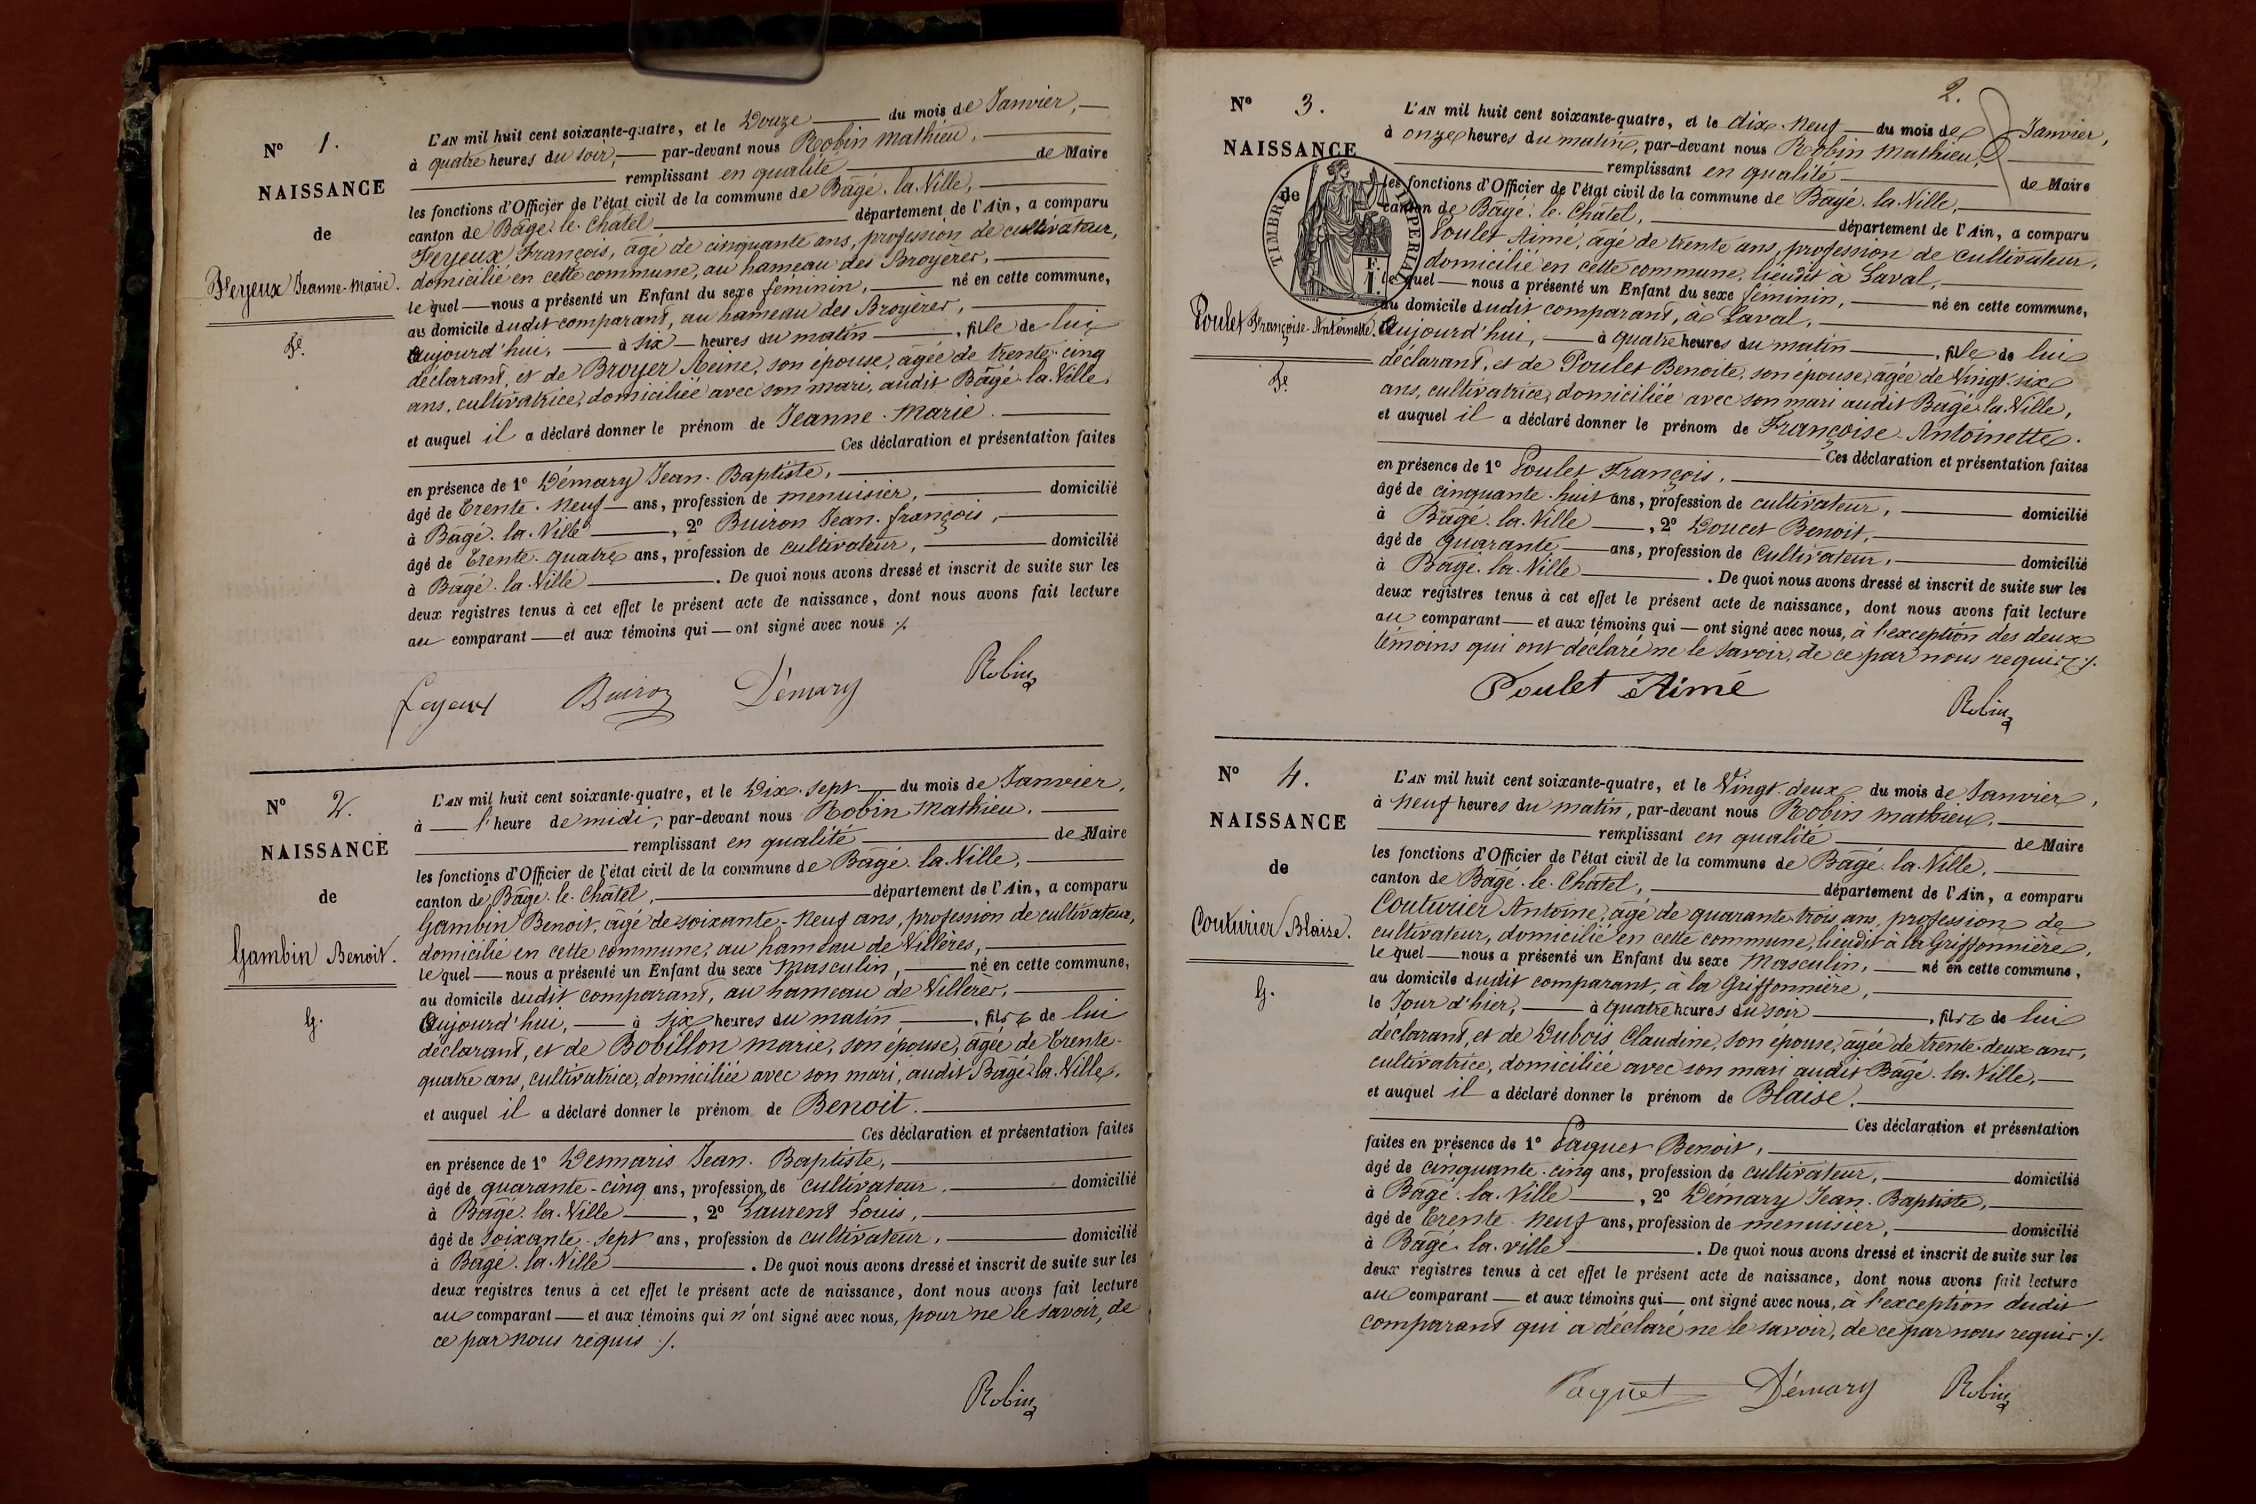 N° 1.
NAISSANCE
de
Feyeux Jeanne-Marie.
Fe.
L'AN mil huit cent soixante-quatre, et le Douze du mois de Janvier,
à quatre heures du soir, par-devant nous Robin Mathieu,
remplissant en qualité de Maire
les fonctions d'Officier de l'état civil de la commune de Bâgé-la-Ville,
canton de Bâgé-le-Châtel département de l'Ain, a comparu
Feyeux François, âgé de cinquante ans, profession de cultivateur,
domicilié en cette commune, au hameau des Broyères,
lequel nous a présenté un Enfant du sexe féminin, né en cette commune,
au domicile dudit comparant, au hameau des Broyères,
aujourd'hui, à six heures du matin, fille de lui
déclarant, et de Broyer Reine, son épouse, âgée de trente-cinq
ans, cultivatrice, domiciliée avec son mari, audit Bâgé-la-Ville,
et auquel il a déclaré donner le prénom de Jeanne-Marie.
Ces déclaration et présentation faites
en présence de 1° Démary Jean-Baptiste,
âgé de Trente-neuf ans, profession de menuisier, domicilié
à Bâgé-la-Ville, 2° Buiron Jean-françois,
âgé de Trente-quatre ans, profession de cultivateur, domicilié
à Bâgé-la-Ville. De quoi nous avons dressé et inscrit de suite sur les
deux registres tenus à cet effet le présent acte de naissance, dont nous avons fait lecture
au comparant et aux témoins qui ont signé avec nous ./.
feyeux Buiron Démary Robin
N° 2.
NAISSANCE
de
Gambin Benoit.
G.
L'AN mil huit cent soixante-quatre, et le Dix-sept du mois de Janvier,
à l'heure de midi, par-devant nous Robin Mathieu,
remplissant en qualité de Maire
les fonctions d'Officier de l'état civil de la commune de Bâgé-la-Ville,
canton de Bâgé-le-Châtel, département de l'Ain, a comparu
Gambin Benoit, âgé de soixante-neuf ans, profession de cultivateur,
domicilié en cette commune, au hameau de Villères,
lequel nous a présenté un Enfant du sexe Masculin, né en cette commune,
au domicile dudit comparant, au hameau de Villères,
aujourd'hui, à six heures du matin, fils de lui
déclarant, et de Bobillon marie, son épouse, âgée de Trente-
quatre ans, cultivatrice, domiciliée avec son mari, audit Bâgé-la-Ville,
et auquel il a déclaré donner le prénom de Benoit.
Ces déclaration et présentation faites
en présence de 1° Desmaris Jean-Baptiste,
âgé de quarante-cinq ans, profession de cultivateur, domicilié
à Bâgé-la-Ville, 2° Laurent Louis,
âgé de soixante-sept ans, profession de cultivateur, domicilié
à Bâgé-la-Ville. De quoi nous avons dressé et inscrit de suite sur les
deux registres tenus à cet effet le présent acte de naissance, dont nous avons fait lecture
au comparant et aux témoins qui n'ont signé avec nous, pour ne le savoir, de
ce par nous requis ./.
Robin
2.
N° 3.
NAISSANCE
de
TIMBRE IMPERIAL
F.
1.
Poulet Françoise-Antoinette.
Fe.
L'AN mil huit cent soixante-quatre, et le dix-neuf du mois de Janvier,
à onze heures du matin, par-devant nous Robin Mathieu,
remplissant en qualité de Maire
les fonctions d'Officier de l'état civil de la commune de Bâgé-la-Ville,
canton de Bâgé-le-Châtel, département de l'Ain, a comparu
Poulet Aimé, âgé de trente ans, profession de cultivateur,
domicilié en cette commune, lieudit à Laval,
lequel nous a présenté un Enfant du sexe féminin, né en cette commune,
au domicile dudit comparant, à Laval,
aujourd'hui, à quatre heures du matin, fille de lui
déclarant, et de Poulet Benoite, son épouse, âgée de Vingt-six
ans, cultivatrice, domiciliée avec son mari audit Bâgé-la-Ville,
et auquel il a déclaré donner le prénom de Françoise-Antoinette.
Ces déclaration et présentation faites
en présence de 1° Poulet François,
âgé de cinquante-huit ans, profession de cultivateur, domicilié
à Bâgé-la-Ville, 2° Doucet Benoit,
âgé de quarante ans, profession de cultivateur, domicilié
à Bâgé-la-Ville. De quoi nous avons dressé et inscrit de suite sur les
deux registres tenus à cet effet le présent acte de naissance, dont nous avons fait lecture
au comparant et aux témoins qui ont signé avec nous, à l'exception des deux
témoins qui ont déclaré ne le savoir, de ce par nous requis ./.
Poulet Aimé Robin
N° 4.
NAISSANCE
de
Couturier Blaise.
G.
L'AN mil huit cent soixante-quatre, et le Vingt-deux du mois de Janvier,
à neuf heures du matin, par-devant nous Robin Mathieu,
remplissant en qualité de Maire
les fonctions d'Officier de l'état civil de la commune de Bâgé-la-Ville,
canton de Bâgé-le-Châtel, département de l'Ain, a comparu
Couturier Antoine, âgé de quarante-trois ans, profession de
cultivateur, domicilié en cette commune, lieudit à la Griffonnière,
lequel nous a présenté un Enfant du sexe Masculin, né en cette commune,
au domicile dudit comparant, à la Griffonnière,
le Jour d'hier, à quatre heures du soir, fils de lui
déclarant, et de Dubois Claudine, son épouse, âgée de trente-deux ans,
cultivatrice, domiciliée avec son mari audit Bâgé-la-Ville,
et auquel il a déclaré donner le prénom de Blaise.
Ces déclaration et présentation
faites en présence de 1° Paquet Benoit,
âgé de cinquante-cinq ans, profession de cultivateur, domicilié
à Bâgé-la-Ville, 2° Démary Jean-Baptiste,
âgé de Trente-neuf ans, profession de menuisier, domicilié
à Bâgé-la-ville. De quoi nous avons dressé et inscrit de suite sur les
deux registres tenus à cet effet le présent acte de naissance, dont nous avons fait lecture
au comparant et aux témoins qui ont signé avec nous, à l'exception dudit
comparant qui a déclaré ne le savoir, de ce par nous requis ./.
Paquet Démary Robin